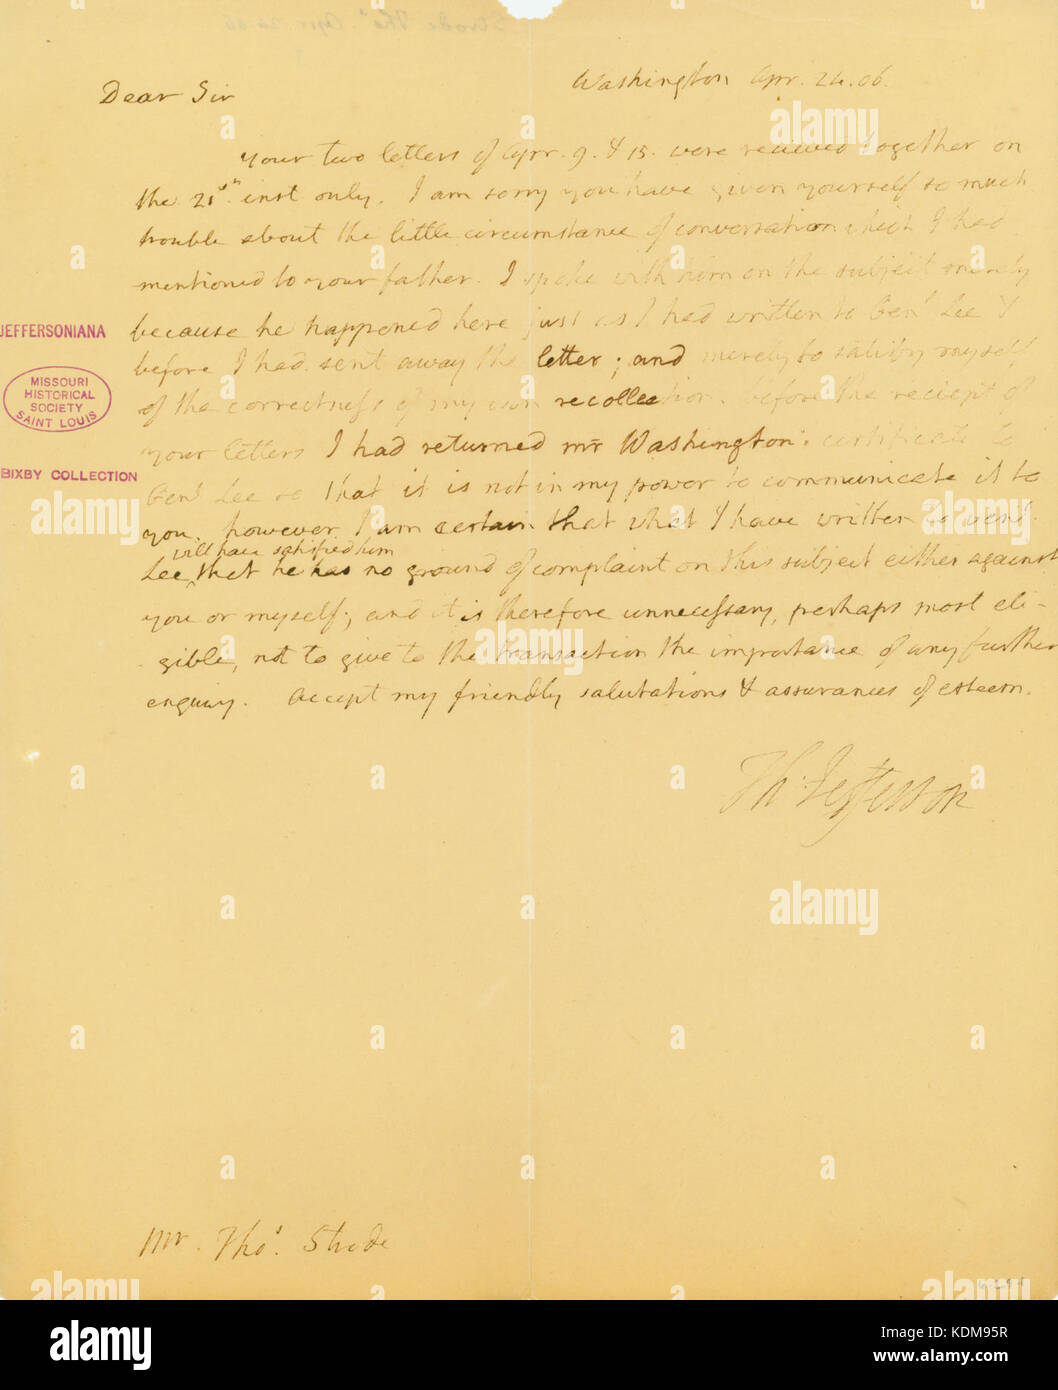 Washington Apr. 24. 06.
Dear Sir
Your two letters of Apr. 9. & 15. were recieved together on
the 21st. inst only. I am sorry you have given yourself so much
trouble about the little circumstance of conversation which I had
mentioned to your father. I spoke with him on the subject merely
because he happened here just as I had written to Genl. Lee &
before I had sent away the letter; and merely to satisfy myself
of the correctness of my own recollection. before the reciept of
your letters I had returned mr Washington's certificate to
Genl. Lee so that it is not in my power to communicate it to
you. however I am certain that what I have written to Genl.
will have satisfied him
Lee, that he has no ground of complaint on this subject either against
you or myself; and it is therefore unnecessary, perhaps most eli-
gible, not to give to the transaction the importance of any further
enquiry. Accept my friendly salutations & assurances of esteem.
Th: Jefferson
Mr. Thos. Strode
JEFFERSONIANA
MISSOURI
HISTORICAL
SOCIETY
SAINT LOUIS
BIXBY COLLECTION
alamy
Image ID: KDM95R
www.alamy.com